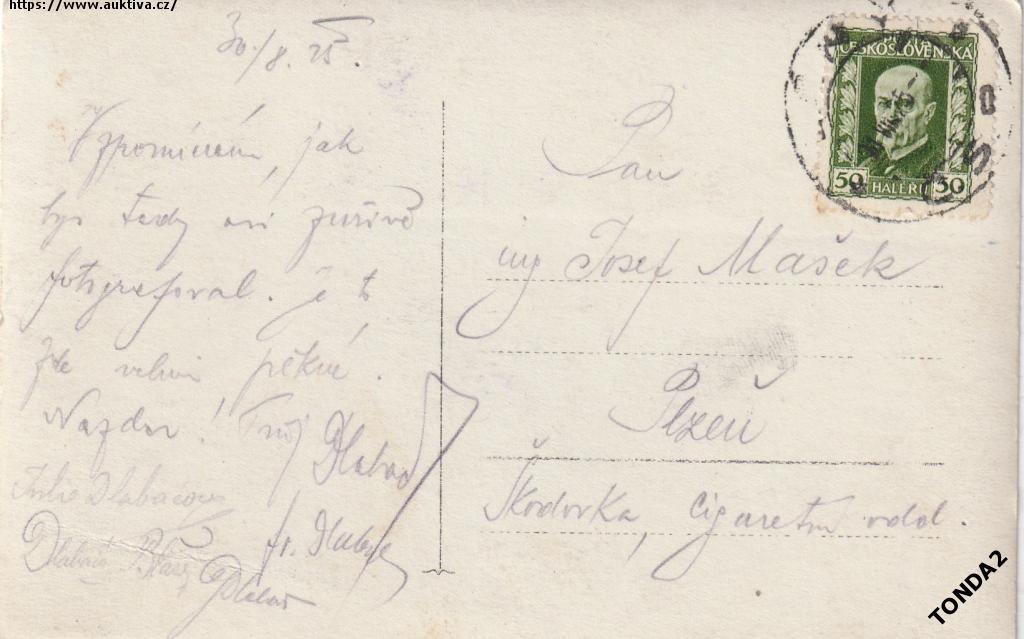 https://www.auktiva.cz/
30/8. 25.
Vzpomínám, jak
bys tady asi zuřivě
fotografoval. Je to
zde velmi pěkné.
Nazdar! Tvůj Dlabač
Julie Dlabačová
fr. Dlabač
Dlabač
Dlabač
Pan
ing Josef Mašek
Plzeň
Škodovka, Cigaretní odd.
ČESKOSLOVENSKÁ
50 HALÉŘŮ 50
TONDA2